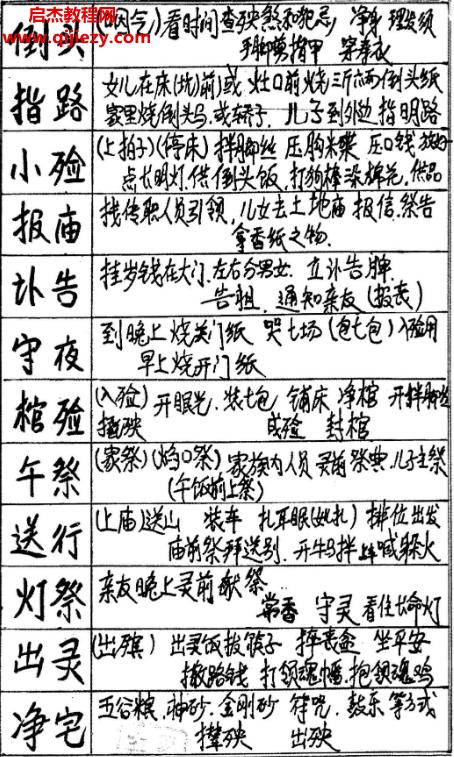 启杰教程网
www.qijiezy.com
倒头
(因令)看时间查殃煞和犯忌 净身 理发须
剪指甲 穿寿衣
指路
女儿在床(炕)前或灶口前烧三斤六两倒头纸
家里烧倒头马或轿子 儿子到外边指明路
小殓
(上拍子)(停床)拌脚丝 压胸米 压口钱
点长明灯.供倒头饭,打狗棒染棉花.供品
报庙
找传职人员引领,儿女去土地庙报信.祭告
拿香纸之物.
讣告
挂岁钱在大门.左右分男女 立讣告牌.
告祖 通知亲友(报丧)
守夜
到晚上烧关门纸 哭七场(包七包)入殓用
早上烧开门纸
棺殓
(入殓)开眼光.装七包 铺床 净棺 开拌脚丝
撵殃 成殓 封棺
午祭
(家祭)(焰口祭)家族内人员灵前祭典.儿子主祭
(午饭前上祭)
送行
(上庙)送山 装车 扎耳眼(女扎)排位出发
庙前祭拜送别.开牛马拌上车喊躲火
灯祭
亲友晚上灵前献祭
常香 守灵 看住长命灯
出灵
(出殡)出灵饭拔筷子 摔丧盆 坐平安
撒路钱 打领魂幡.抱领魂鸡
净宅
五谷粮.神砂.金刚砂 符咒.鼓乐等方式
撵殃 出殃